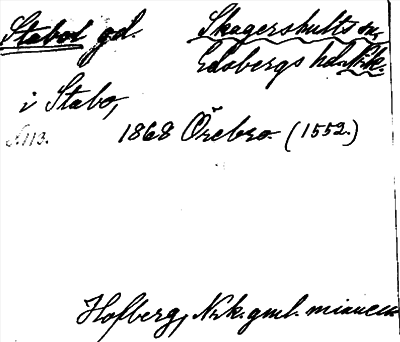 Stabol gd. Skagershults sn,
Edsbergs hd. Nrk.
i Stabo,
s. 113. 1868 Örebro (1552.)
Hofberg, Nrk. gml. minnen